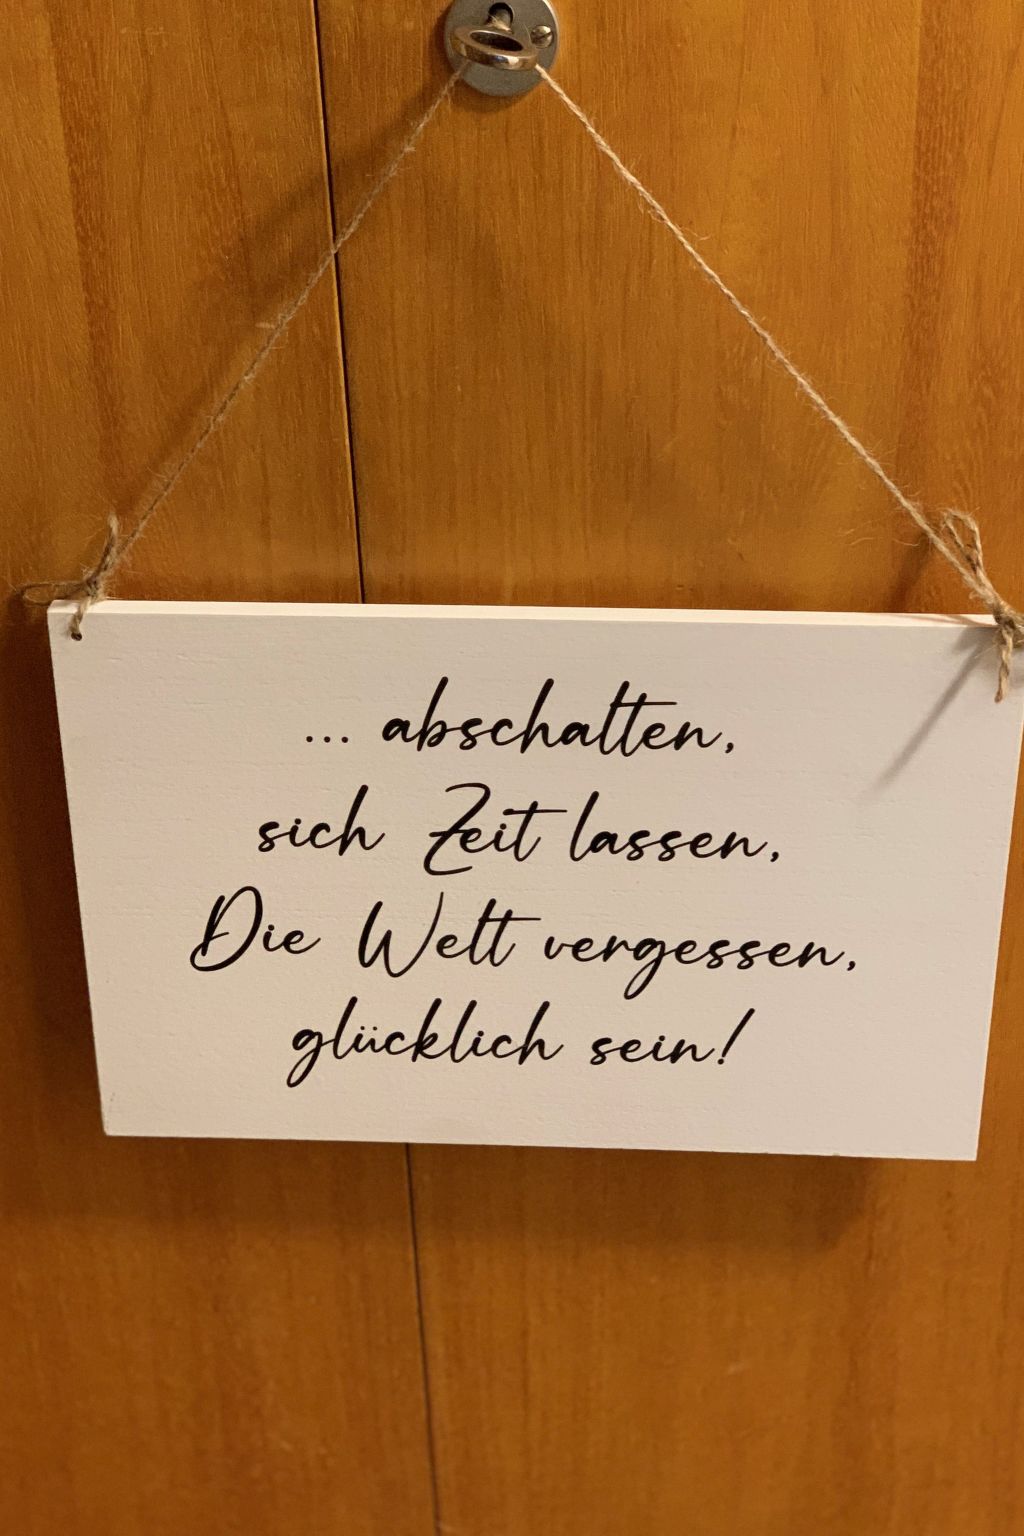 ... abschalten,
sich Zeit lassen,
Die Welt vergessen,
glücklich sein!